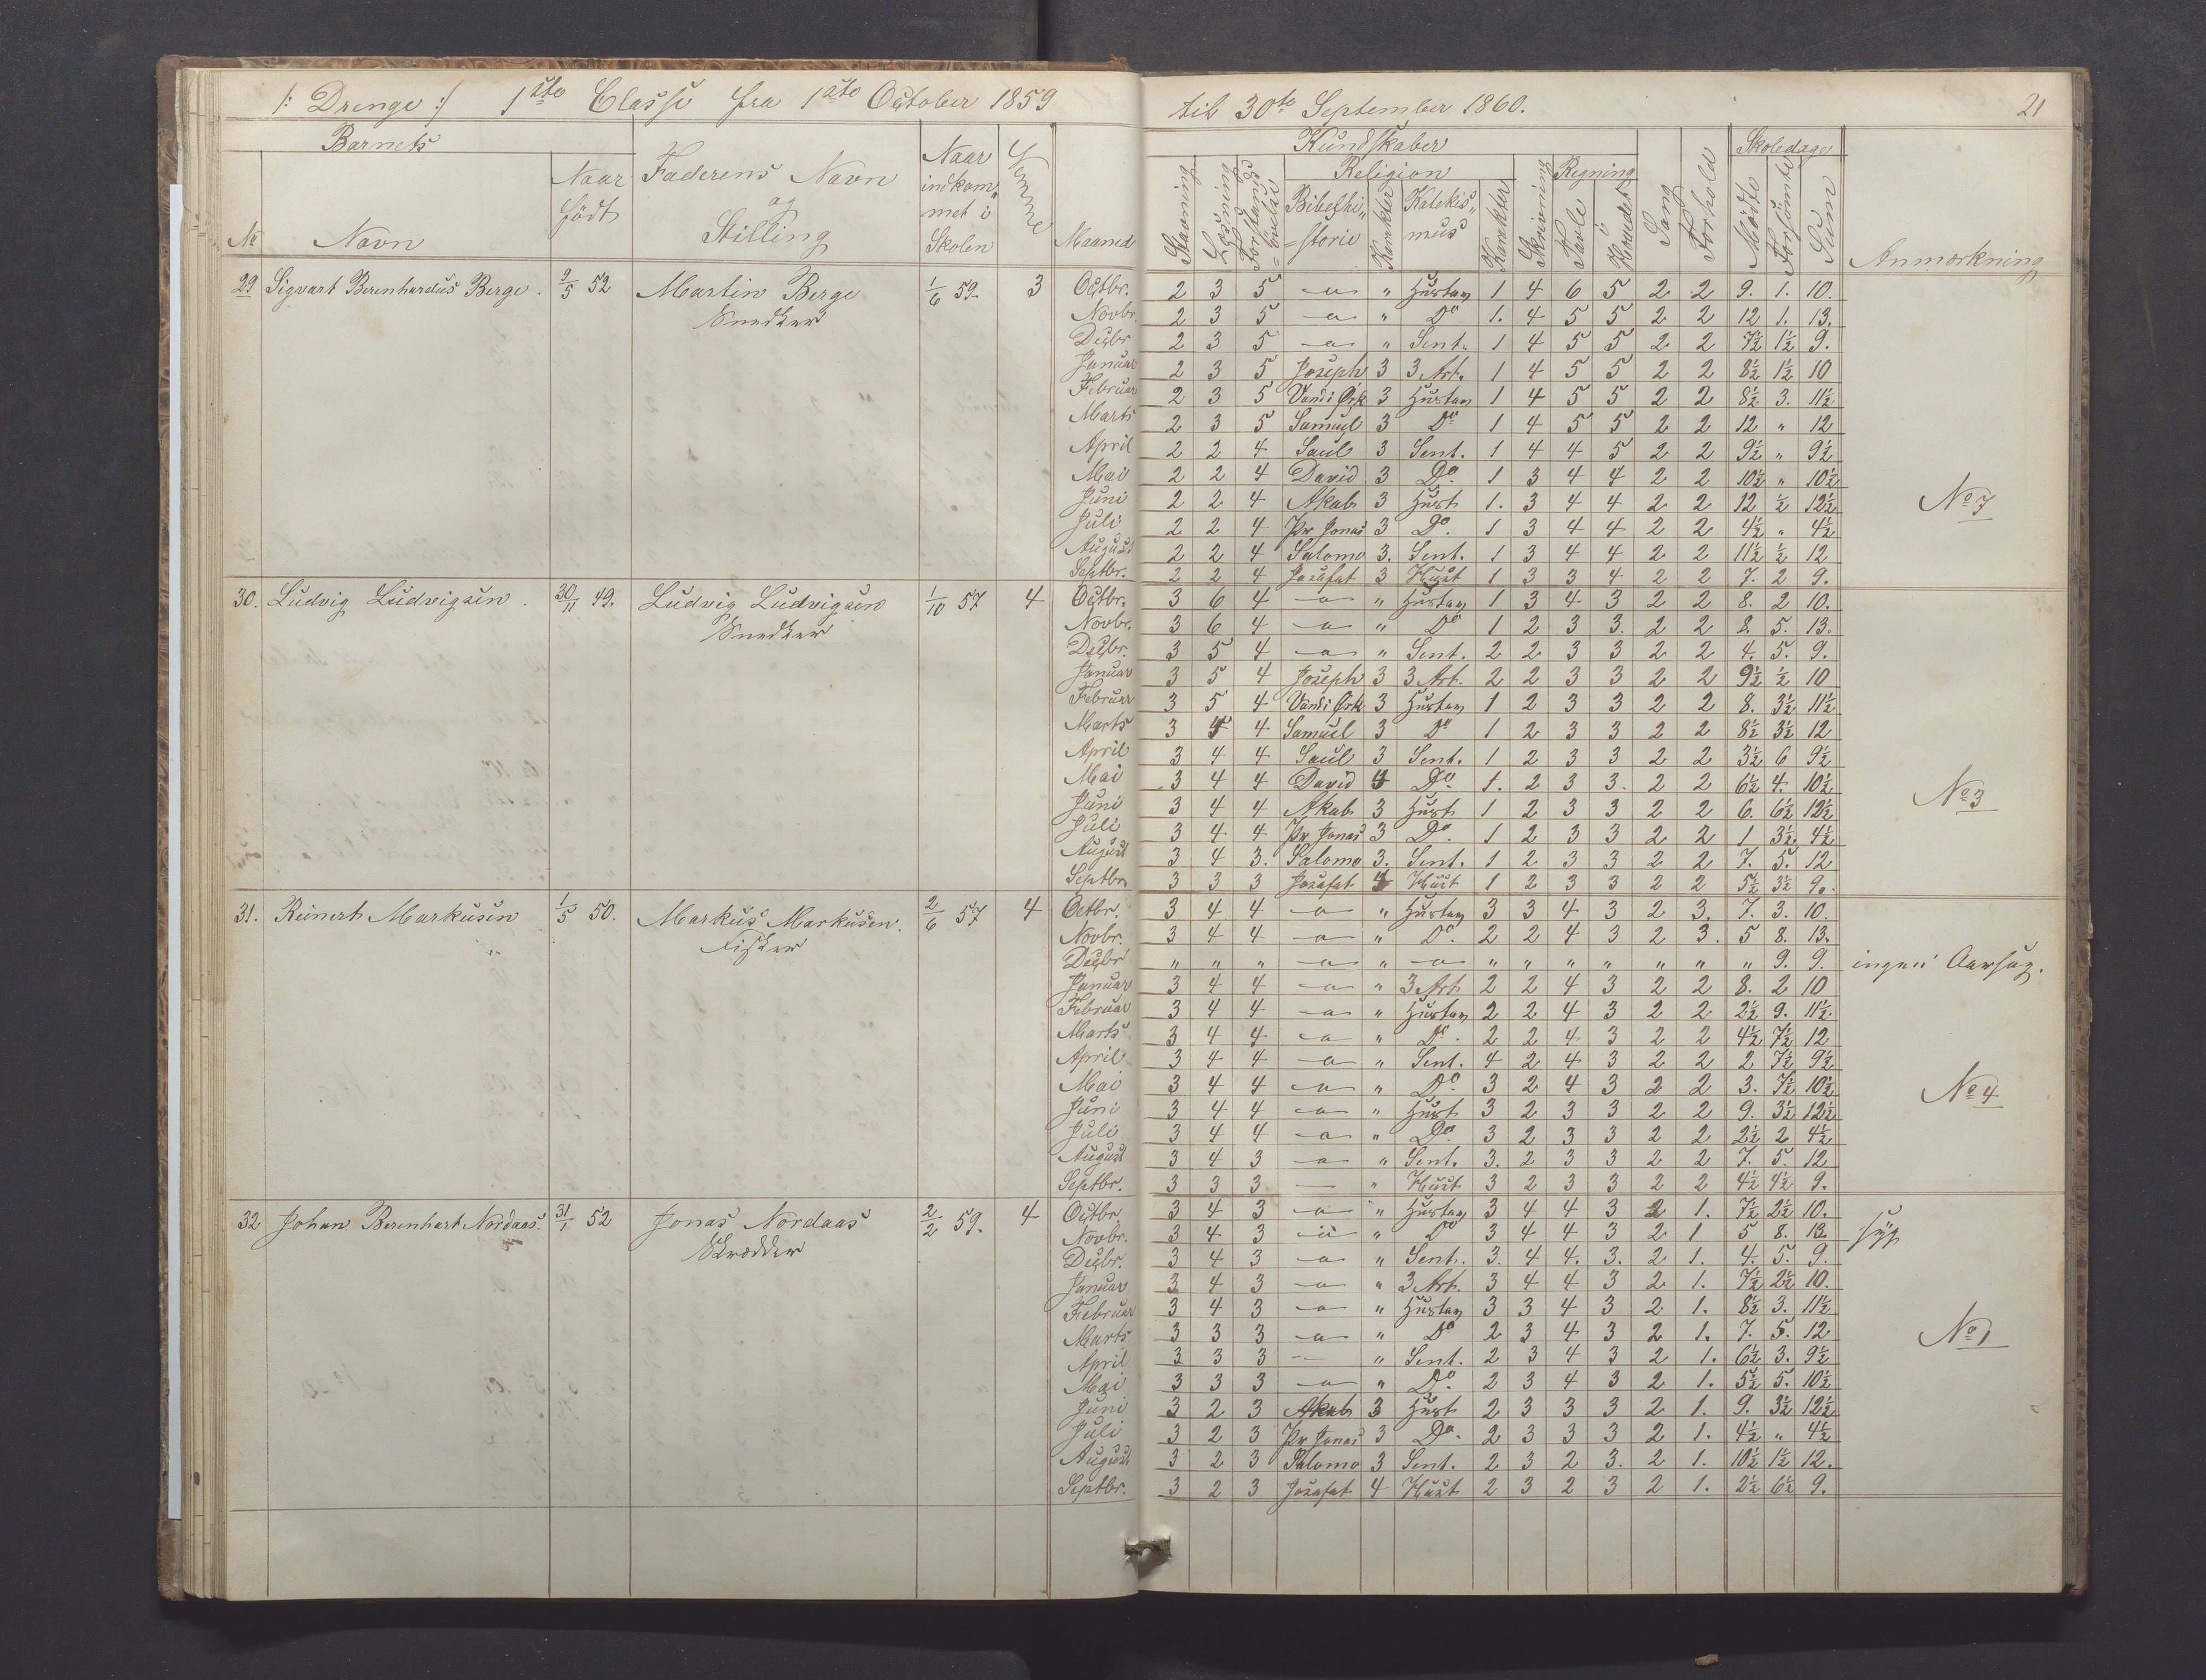 /: Drenge :/ 1ste Classe fra 1ste October 1859 til 30te September 1860. 21
Barnets Faderens Navn og Stilling Naar indkommet i Skolen Maaned Kundskaber Sang Forhold Skoledage Anmærkning
No Navn Naar födt Stavning Læsning Religion Bibelhistorie Karakter Katekismus Karakter Skrivning Regning Tavle Hovedet Mödte Forsömte Sum
29 Sigvart Berenhardus Berge. 9/5 52 Martin Berge Snedker 1/6 59. 3
Octbr. 2 3 5 -"- " Hustav 1 4 6 5 2 2 9. 1. 10.
Novbr. 2 3 5 -"- " Do 1. 4 5 5 2 2 12 1. 13.
Decbr 2 3 5 -"- " Sent. 1 4 5 5 2 2 7½ 1½ 9.
Januar 2 3 5 Joseph 3 3 Art. 1 4 5 5 2 2 8½ 1½ 10
Februar 2 3 5 Vand i Ørk 3 Hustav 1 4 5 5 2 2 8½ 3. 11½
Marts 2 3 5 Samuel 3 Do 1 4 5 5 2 2 12 " 12
April 2 2 4 Saul 3 Sent. 1 4 4 5 2 2 9½ " 9½
Mai 2 2 4 David 3 Do. 1 3 4 4 2 2 10½ " 10½
Juni 2 2 4 Akab 3 Hust 1. 3 4 4 2 2 12 ½ 12½ No 7
Juli 2 2 4 Pr Jonas 3 Do. 1 3 4 4 2 2 4½ " 4½
August 2 2 4 Salomo 3. Sent. 1 3 4 4 2 2 11½ ½ 12
Septbr. 2 2 4 Josafat 3 Hust 1 3 3 4 2 2 7. 2 9.
30. Ludvig Ludvigsen. 30/11 49. Ludvig Ludvigsen Snedker 1/10 57 4
Octbr. 3 6 4 -"- " Hustav 1 3 4 3 2 2 8. 2 10.
Novbr. 3 6 4 -"- " Do 1 2 3 3. 2 2 8. 5. 13.
Decbr. 3 5 4 -"- " Sent. 2 2 3 3 2 2 4. 5. 9.
Januar 3 5 4 Joseph 3 3 Art. 2 2 3 3 2 2 9½ ½ 10
Februar 3 5 4 Vand i Ørk 3 Hustav 1 2 3 3 2 2 8. 3½ 11½
Marts 3 4 Samuel 3 Do 1 2 3 3 2 2 8½ 3½ 12
April 3 4 4 Saul 3 Sent. 1 2 3 3 2 2 3½ 6 9½
Mai 3 4 4 David 4 Do. 1. 2 3 3. 2 2 6½ 4. 10½
Juni 3 4 4 Akab 3 Hust 1 2 3 3 2 2 6. 6½ 12½ No 3
Juli 3 4 4 Pr Jonas 3 Do. 1 2 3 3 2 2 1 3½ 4½
August 3 4 3. Salomo 3. Sent. 1 2 3 3 2 2 7. 5. 12
Septbr. 3 3 3 Josafat 4 Hust 1 2 3 3 2 2 5½ 3½ 9.
31. Reinert Markusen 1/5 50. Markus Markusen. Fisker 2/6 57 4
Octbr. 3 4 4 -"- " Hustav 3 3 4 3 2 3. 7. 3. 10.
Novbr. 3 4 4 -"- " Do. 2 2 4 3 2 3. 5 8. 13.
Decbr " " " -"- " -"- " " " " " " " 9. 9. ingen Aarsag.
Januar 3 4 4 -"- " 3 Art 2 2 4 3 2 2 8. 2 10
Februar 3 4 4 -"- " Hustav 2 2 4 3 2 2 2½ 9. 11½
Marts 3 4 4 -"- " Do. 2 2 4 3 2 2 4½ 7½ 12
April 3 4 4 -"- " Sent. 4 2 4 3 2 2 2 7½ 9½
Mai 3 4 4 -"- " Do. 3 2 4 3 2 2 3. 7½ 10½ No 4
Juni 3 4 4 -"- " Hust 3 2 3 3 2 2 9. 3½ 12½
Juli 3 4 4 -"- " Do. 3 2 3 3 2 2 2½ 2 4½
August 3 4 3 -"- " Sent. 3. 2 3 3 2 2 7. 5. 12
Septbr. 3 3 3 — " Hust 3 2 3 3 2 2 4½ 4½ 9.
32 Johan Berenhart Nordaas. 31/1 52 Jonas Nordaas Skrædder 2/2 59. 4
Octbr. 3 4 3 -"- " Hustav 3 4 4 3 2 1. 7½ 2½ 10.
Novbr. 3 4 3 -"- " Do 3 4 4 3 2 1 5 8. 13. syg
Decbr. 3 4 3 -"- " Sent. 3. 4 4. 3. 2 1. 4. 5. 9.
Januar 3 4 3 -"- " 3 Art. 3 4 4 3 2 1. 7½ 2½ 10.
Februar 3 4 3 -"- " Hustav 3 3 4 3 2 1. 8½ 3. 11½
Marts 3 3 3 -"- " Do 2 3 4 3 2 1. 7. 5. 12 No 1
April 3 3 3 — " Sent. 2 3 4 3 2 1. 6½ 3. 9½
Mai 3 3 3 -"- " Do. 2 3 4 3 2 1. 5½ 5. 10½
Juni 3 2 3 Akab 3 Hust 2 3 3 3 2 1. 9. 3½ 12½
Juli 3 2 3 Pr Jonas 3 Do. 2 3 3 3 2 1. 4½ " 4½
August 3 2 3 Salomo 3 Sent. 2 3 2 3. 2 1. 10½ 1½ 12.
Septbr. 3 2 3 Josafat 4 Hust 2 3 2 3 2 1. 2½ 6½ 9.